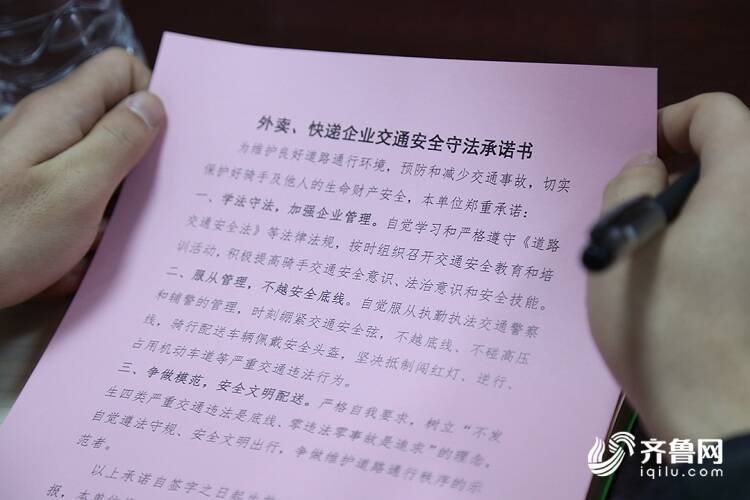 外卖、快递企业交通安全守法承诺书
为维护良好道路通行环境，预防和减少交通事故，切实
保护好骑手及他人的生命财产安全，本单位郑重承诺：
一、学法守法，加强企业管理。自觉学习和严格遵守《道路
交通安全法》等法律法规，按时组织召开交通安全教育和培
训活动，积极提高骑手交通安全意识、法治意识和安全技能。
二、服从管理，不越安全底线。自觉服从执勤执法交通警察
和辅警的管理，时刻绷紧交通安全弦，不越底线、不碰高压
线，骑行配送车辆佩戴安全头盔，坚决抵制闯红灯、逆行、
占用机动车道等严重交通违法行为。
三、争做模范，安全文明配送。严格自我要求，树立“不发
生四类严重交通违法是底线、零违法零事故是追求”的理念，
自觉遵法守规、安全文明出行，争做维护道路通行秩序的示
范者。
以上承诺自签字之日起生效
报，本单位
齐鲁网
iqilu.com